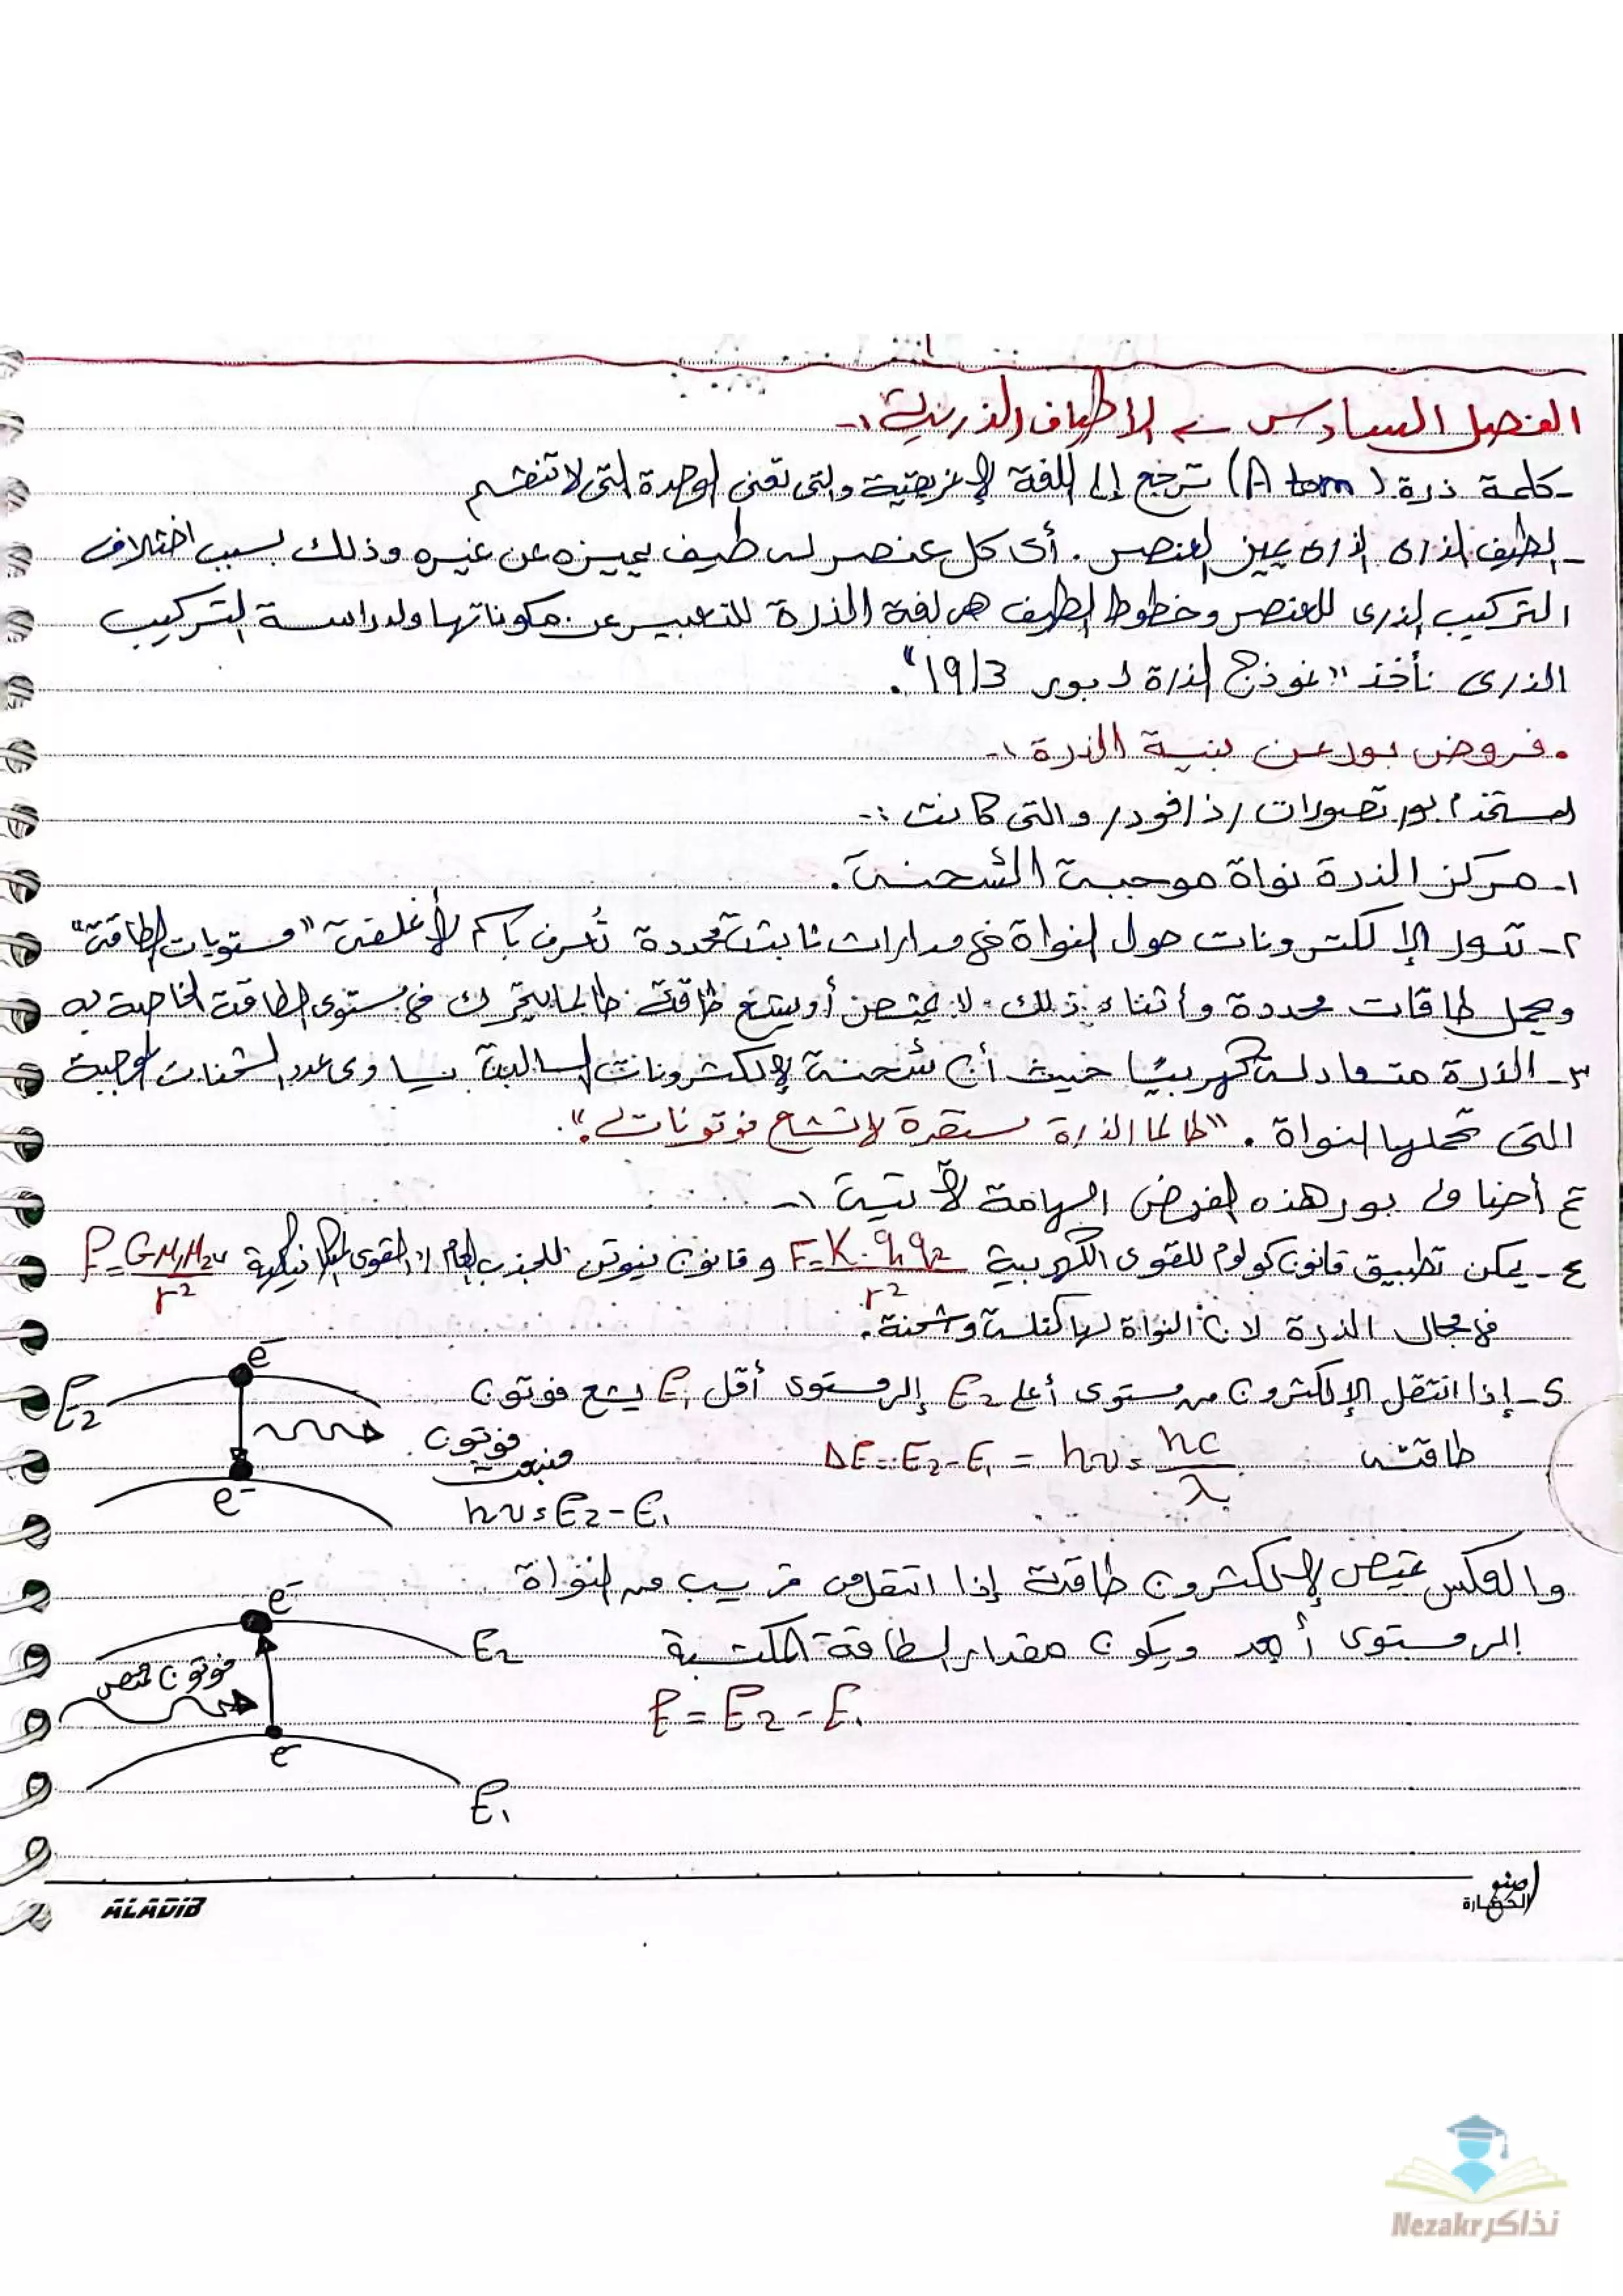 الفصل السادس => الأطياف الذرية :-
- كلمة ذرة (Atom) ترجع إلى اللغة الإغريقية والتى تعنى الوحدة التى لا تنقسم
- الطيف الذرى الذى يميز العنصر . أى كل عنصر له طيف يميزه عن غيره وذلك بسبب اختلاف
التركيب الذرى للعنصر وخطوط الطيف هى لغة الذرة للتعبير عن مكوناتها ولدراسة التركيب
الذرى نأخذ "نموذج الذرة لـ بور 1913" .
• فروض بور عن بنية الذرة :-
استخدم بور تصورات رذرفورد والتى كانت :-
١- مركز الذرة نواة موجبة الشحنة .
٢- تدور الإلكترونات حول النواة فى مدارات ثابتة محددة تُعرف باسم الأغلفة "مستويات الطاقة"
ويحمل طاقات محددة وأثناء ذلك لا يمتص أو يشع طاقة طالما يتحرك فى مستوى الطاقة الخاصة به
٣- الذرة متعادلة كهربيًا حيث أن شحنة الإلكترونات السالبة يساوى عدد الشحنات الموجبة
التى تحملها النواة . "طالما الذرة مستقرة لا تشع فوتونات" .
ع أضاف بور هذه الفروض الهامة الآتية :-
٤- يمكن تطبيق قانون كولوم للقوى الكهربية F = K . q₁q₂ / r² و قانون نيوتن للجذب العام لـ القوى الميكانيكية F = G M₁M₂ / r²
فى مجال الذرة لان النواة لها كتلة وشحنة .
5- إذا انتقل الإلكترون من مستوى أعلى E₂ إلى مستوى أقل E₁ يشع فوتون
طاقته ΔE = E₂ - E₁ = hν = hc / λ
e⁻
E₂
فوتون منبعث
e⁻
hν = E₂ - E₁
والعكس يمتص الإلكترون طاقة إذا انتقل من قريب من النواة
إلى مستوى أبعد ويكون مقدار الطاقة المكتسبة
E = E₂ - E₁
e⁻
E₂
فوتون ممتص
e⁻
E₁
ALADIB
الحضارة
نذاكر Nezakr